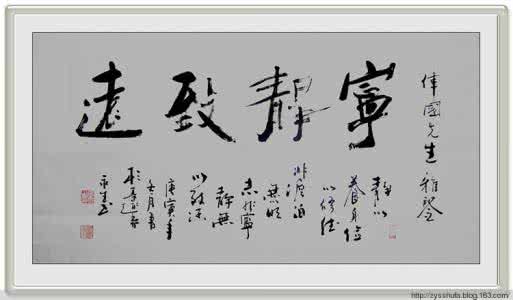 偉國先生雅鑒
寧靜致遠
靜以
養身儉
以修德
非澹泊
無明
志非寧
靜無
以致深
庚寅年
月書
http://zysshufa.blog.163.com/